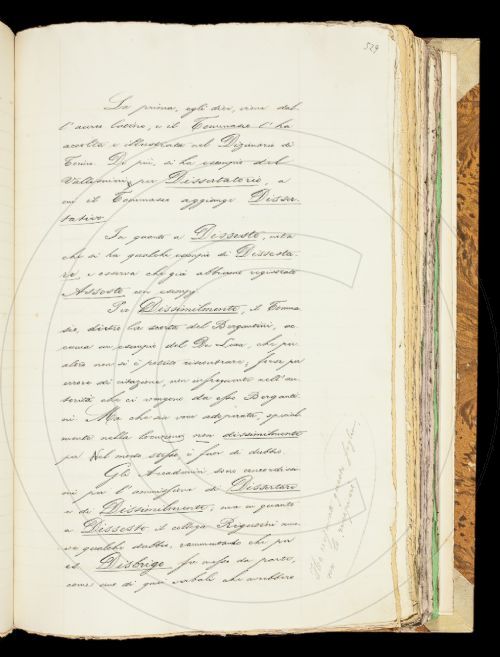 529
La prima, egli dice, viene dal
l'aureo Cocchio, e il Tommaseo l'ha
accolta e illustrata nel Dizionario di
Torino. Di più, si ha esempio del
Vallisnieri per Dissertatorio, a
cui il Tommaseo aggiunge Disser-
tativo.
In quanto a Dissesto, nota
che si ha qualche esempio di Dissesta-
re, e osserva che già abbiamo registrato
Assesto, con esempj.
Per Dissimilmente, il Tomma-
séo, dietro la scorta del Bergantini, ac
cenna un esempio del Da Luca, che per
altro non si è potuto riscontrare, forse per
errore di citazione, non infrequente nell'au-
torità che ci vengono da esso Berganti-
ni. Ma che sia voce adoperata, special-
mente nella locuzione non dissimilmente
per Nel modo stesso, è fuor di dubbio.
Gli Accademici sono concordi
per l'ammissione di Dissertare
e di Dissimilmente; ma in quanto
a Dissesto il collega Rigutini
qualche dubbio, rammentando che per
il Disbrigo fu messo da parte,
come uno di quei verbali che